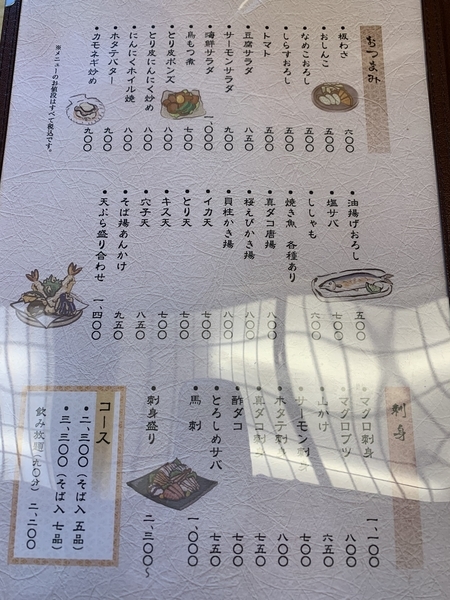 おつまみ
・板わさ 六〇〇
・おしんこ 五〇〇
・なめこおろし 五〇〇
・しらすおろし 五〇〇
・トマト 五〇〇
・豆腐サラダ 八五〇
・サーモンサラダ 九〇〇
・海鮮サラダ 一、〇〇〇
・鳥もつ煮 七〇〇
・とり皮ポンズ 八〇〇
・とり皮にんにく炒め 八〇〇
・にんにくホイル焼 八〇〇
・ホタテバター 九〇〇
・カモネギ炒め 九〇〇
※メニューのお値段はすべて税込です。
・油揚げおろし 五〇〇
・塩サバ 七〇〇
・ししゃも 六〇〇
・焼き魚 各種あり
・真ダコ唐揚 八〇〇
・桜えびかき揚 八〇〇
・貝柱かき揚 八〇〇
・イカ天 七〇〇
・とり天 七〇〇
・キス天 七〇〇
・穴子天 八五〇
・そば揚あんかけ 九五〇
・天ぷら盛り合わせ 一、四〇〇
刺身
・マグロ刺身 一、一〇〇
・マグロブツ 八〇〇
・山かけ 六五〇
・サーモン刺身 七〇〇
・ホタテ刺身 八〇〇
・真ダコ刺身 七五〇
・酢ダコ 七〇〇
・とろしめサバ 七五〇
・馬刺 一、〇〇〇
・刺身盛り 二、三〇〇～
コース
・二、三〇〇（そば入 五品）
・三、三〇〇（そば入 七品）
飲み放題（九〇分） 二、二〇〇